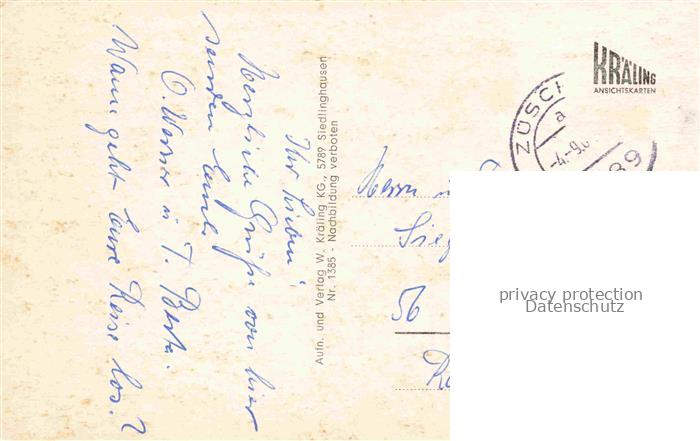 Ihr Lieben!
Herzliche Grüße von hier
senden Euch
O. Werner u. T. Berta.
Wann geht Eure Reise los?
Aufn. und Verlag W. Kräling KG., 5789 Siedlinghausen
Nr. 1385 - Nachbildung verboten
KRÄLING
ANSICHTSKARTEN
ZÜSCH
a
-4.-9.6
89
Herrn
Sieg
56
privacy protection
Datenschutz